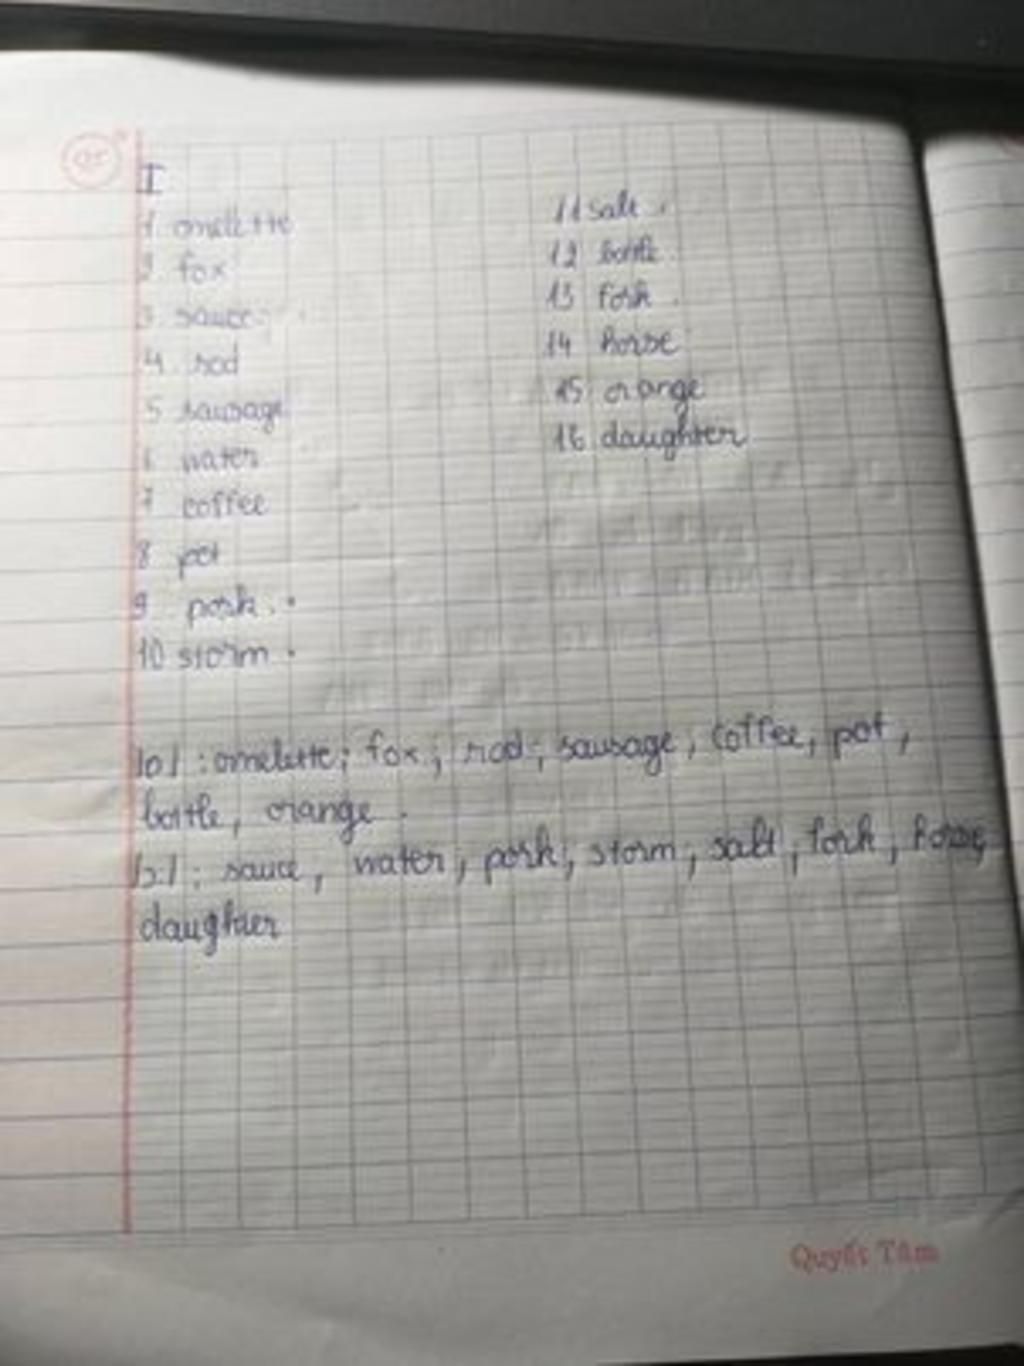 I
1 omelette
2 fox
3 sauce
4 rod
5 sausage
6 water
7 coffee
8 pot
9 pork.
10 storm
11 salt.
12 bottle.
13 fork.
14 horse
15 orange
16 daughter
/ɒ/ : omelette; fox; rod; sausage, coffee, pot,
bottle, orange.
/ɔ:/ : sauce, water, pork, storm, salt, fork, horse,
daughter
Quyết Tâm